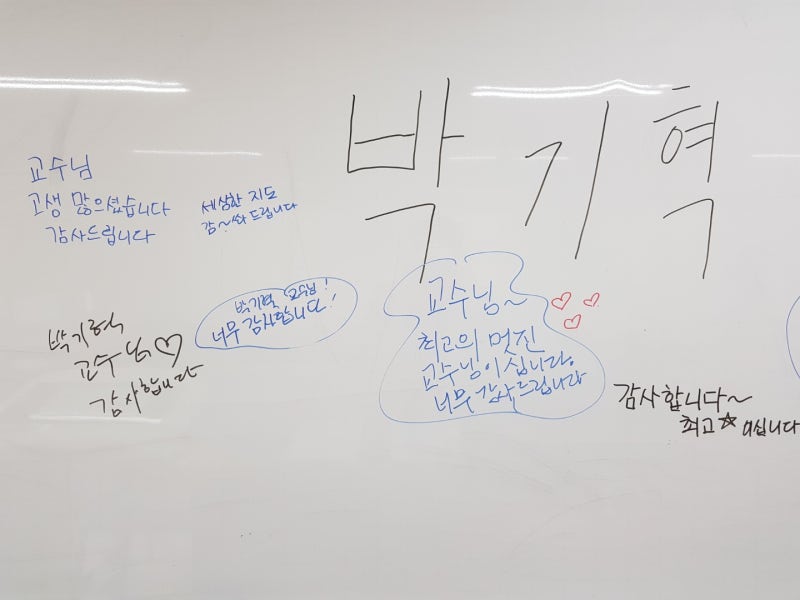 박기혁
교수님
고생 많으셨습니다
감사드립니다
세상한 지도
감~솨 드립니다
박기혁 교수님!
너무 감사합니다!
교수님~
최고의 멋진
교수님이십니다.
너무 감사드립니다
박기혁
교수님♡
감사합니다
감사합니다~
최고☆이십니다